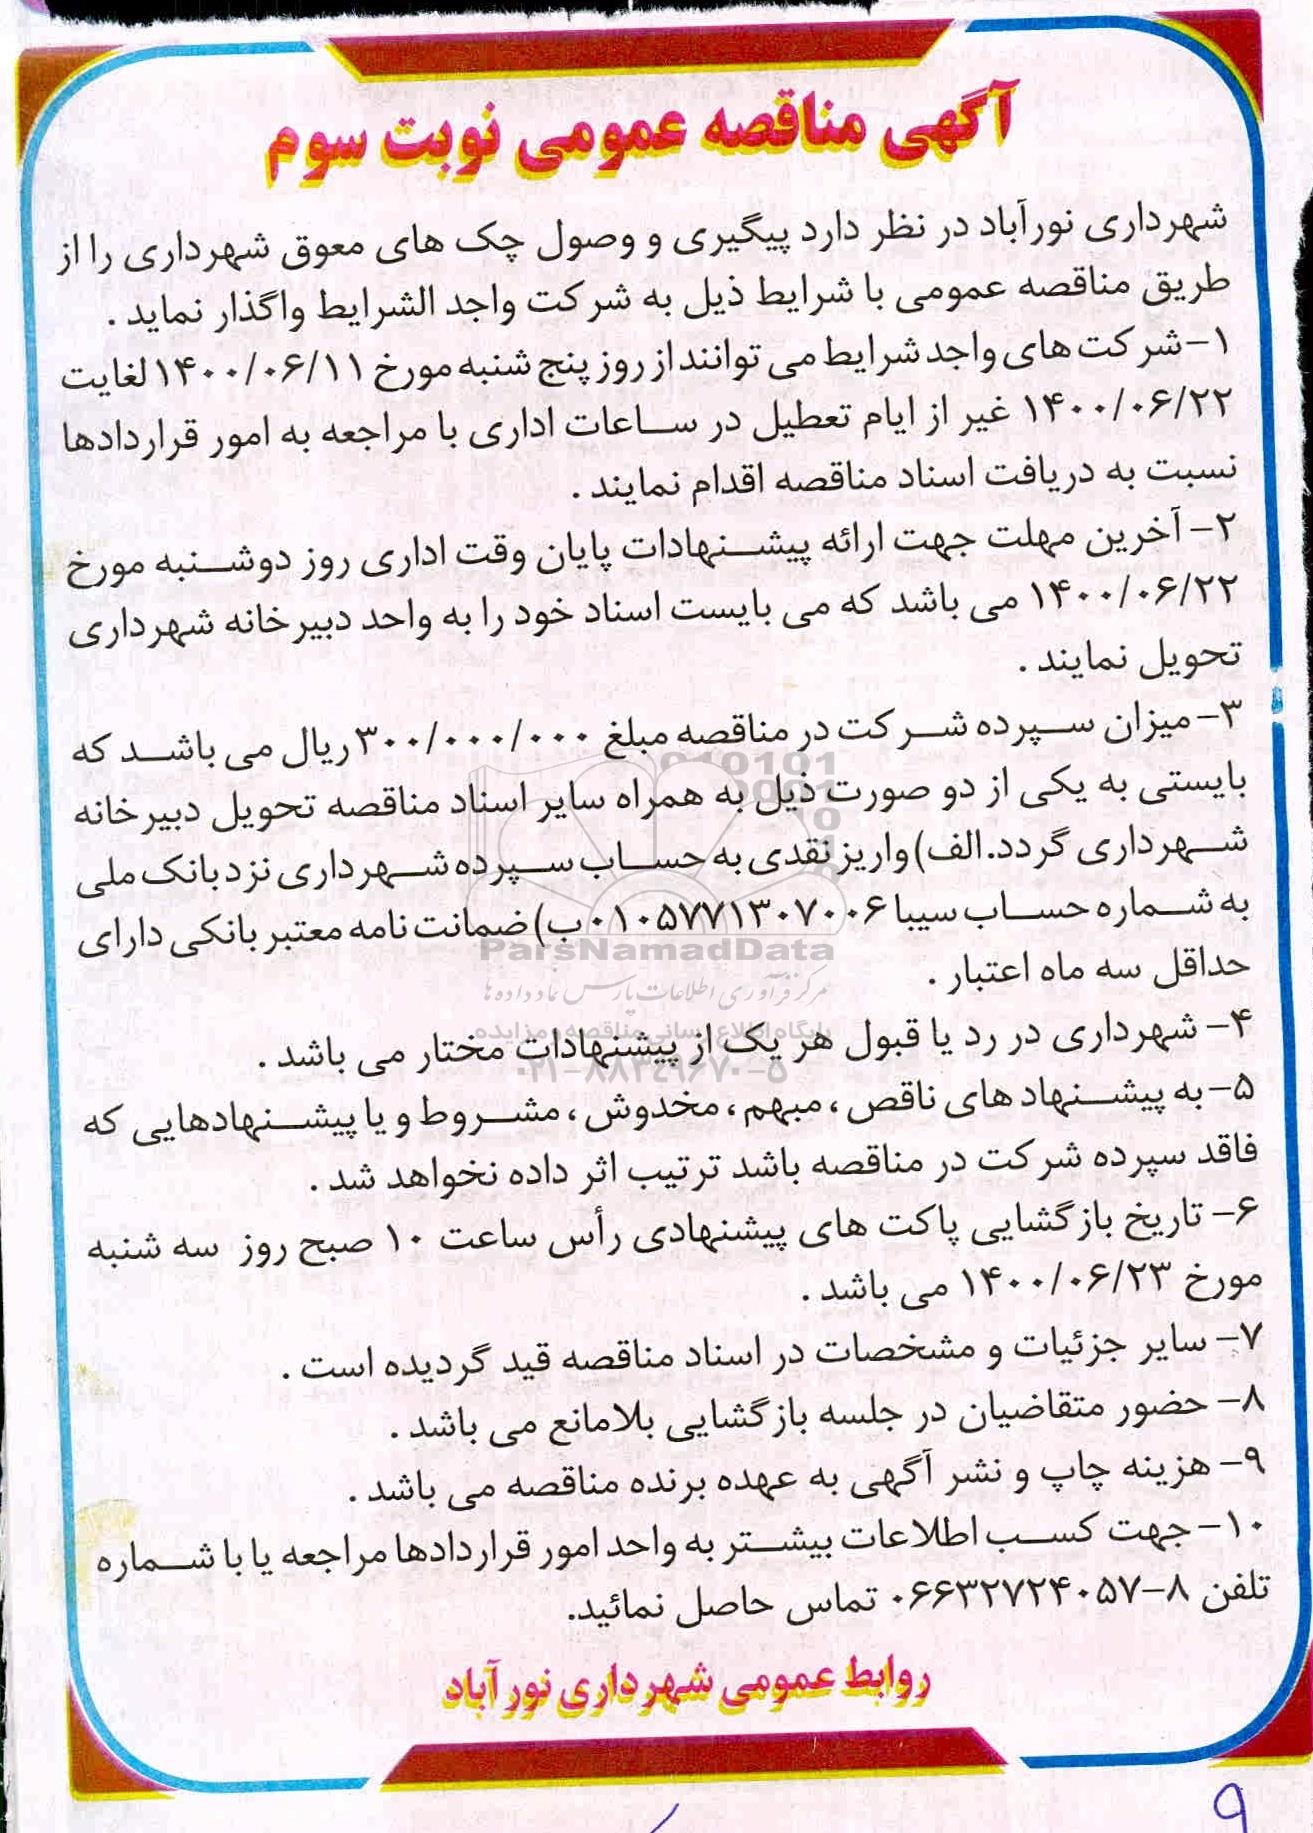 آگهی مناقصه عمومی نوبت سوم
شهرداری نورآباد در نظر دارد پیگیری و وصول چک های معوق شهرداری را از
طریق مناقصه عمومی با شرایط ذیل به شرکت واجد الشرایط واگذار نماید .
۱- شرکت های واجد شرایط می توانند از روز پنج شنبه مورخ ۱۴۰۰/۰۶/۱۱ لغایت
۱۴۰۰/۰۶/۲۲ غیر از ایام تعطیل در ساعات اداری با مراجعه به امور قراردادها
نسبت به دریافت اسناد مناقصه اقدام نمایند .
۲- آخرین مهلت جهت ارائه پیشنهادات پایان وقت اداری روز دوشنبه مورخ
۱۴۰۰/۰۶/۲۲ می باشد که می بایست اسناد خود را به واحد دبیرخانه شهرداری
تحویل نمایند .
۳- میزان سپرده شرکت در مناقصه مبلغ ۳۰۰/۰۰۰/۰۰۰ ریال می باشد که
بایستی به یکی از دو صورت ذیل به همراه سایر اسناد مناقصه تحویل دبیرخانه
شهرداری گردد. الف) واریز نقدی به حساب سپرده شهرداری نزد بانک ملی
به شماره حساب سیبا ۰۱۰۵۷۷۱۳۰۷۰۰۶ ب) ضمانت نامه معتبر بانکی دارای
حداقل سه ماه اعتبار .
۴- شهرداری در رد یا قبول هر یک از پیشنهادات مختار می باشد .
۵- به پیشنهاد های ناقص ، مبهم ، مخدوش ، مشروط و یا پیشنهادهایی که
فاقد سپرده شرکت در مناقصه باشد ترتیب اثر داده نخواهد شد .
۶- تاریخ بازگشایی پاکت های پیشنهادی رأس ساعت ۱۰ صبح روز سه شنبه
مورخ ۱۴۰۰/۰۶/۲۳ می باشد .
۷- سایر جزئیات و مشخصات در اسناد مناقصه قید گردیده است .
۸- حضور متقاضیان در جلسه بازگشایی بلامانع می باشد .
۹- هزینه چاپ و نشر آگهی به عهده برنده مناقصه می باشد .
۱۰- جهت کسب اطلاعات بیشتر به واحد امور قراردادها مراجعه یا با شماره
تلفن ۸-۰۶۶۳۲۷۲۴۰۵۷ تماس حاصل نمائید.
روابط عمومی شهرداری نورآباد
ParsNamadData
مرکز فرآوری اطلاعات پارس نماد داده ها
پایگاه اطلاع رسانی مناقصه و مزایده
۰۲۱-۸۸۳۴۹۶۷۰-۵
۹